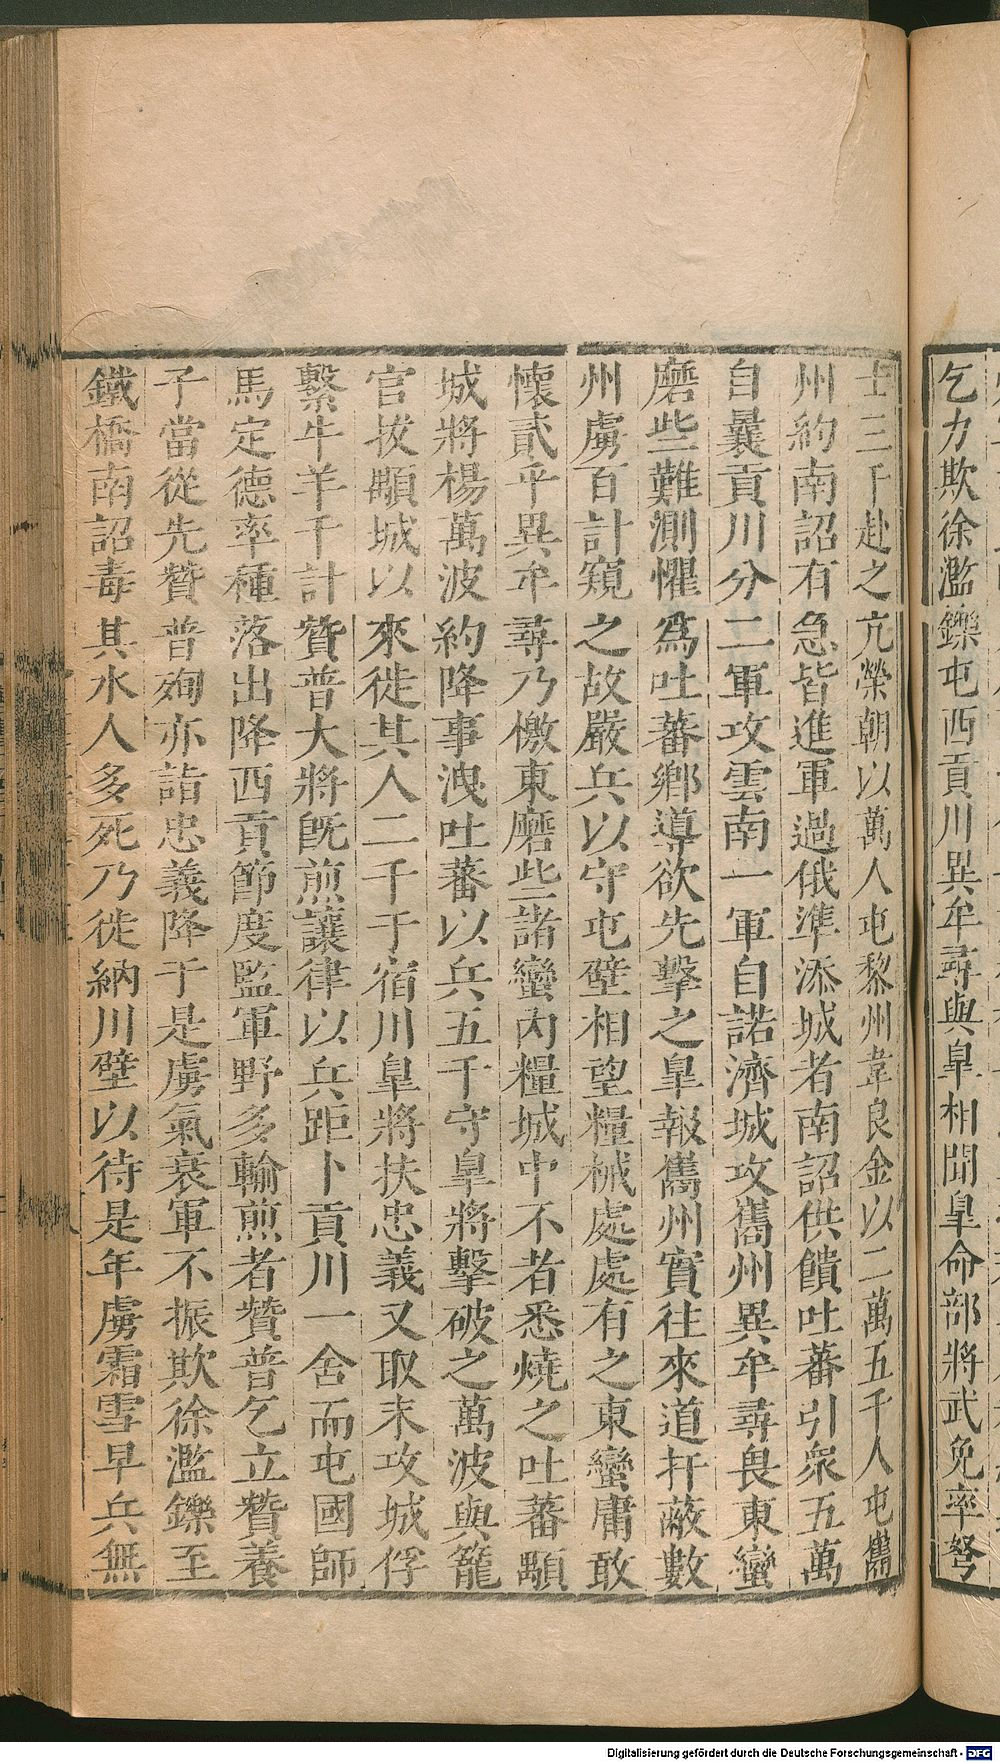 乞力欺徐濫鑠屯西貢川異牟尋與皐相聞皐命部將武免率弩
士三千赴之亢榮朝以萬人屯黎州韋良金以二萬五千人屯巂
州約南詔有急皆進軍過俄準添城者南詔供饋吐蕃引衆五萬
自曩貢川分二軍攻雲南一軍自諾濟城攻巂州異牟尋畏東蠻
磨些難測懼爲吐蕃鄉導欲先擊之皐報巂州實往來道扞蔽數
州虜百計窺之故嚴兵以守屯壁相望糧械處處有之東蠻庸敢
懷貳乎異牟尋乃檄東磨些諸蠻內糧城中不者悉燒之吐蕃顒
城將楊萬波約降事洩吐蕃以兵五千守皐將擊破之萬波與籠
官拔顒城以來徙其人二千于宿川皐將扶忠義又取末攻城俘
繫牛羊千計贊普大將旣煎讓律以兵距卜貢川一舍而屯國師
馬定德率種落出降西貢節度監軍野多輸煎者贊普乞立贊養
子當從先贊普殉亦詣忠義降于是虜氣衰軍不振欺徐濫鑠至
鐵橋南詔毒其水人多死乃徙納川壁以待是年虜霜雪早兵無
Digitalisierung gefördert durch die Deutsche Forschungsgemeinschaft - DFG